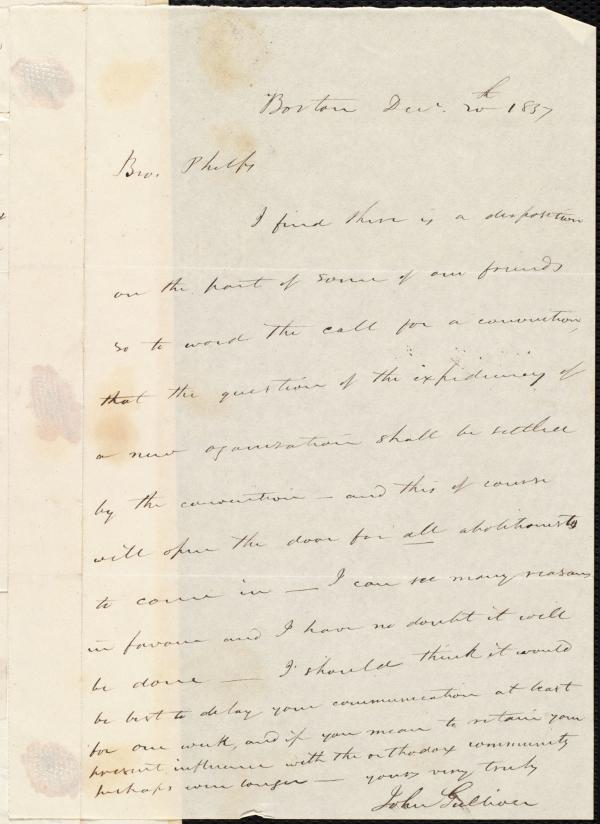 Boston Decr. 20th 1837
Bro. Phelps
I find there is a disposition
on the part of some of our friends
so to word the call for a convention,
that the question of the expediency of
a new oganization shall be settled
by the convention — and this of course
will open the door for all abolitionists
to come in — I can see many reasons
in favour and I have no doubt it will
be done — I should think it would
be best to delay your communication at least
for one week, and if you mean to retain your
present influence with the orthodox community
perhaps even longer — yours very truly
John Gulliver